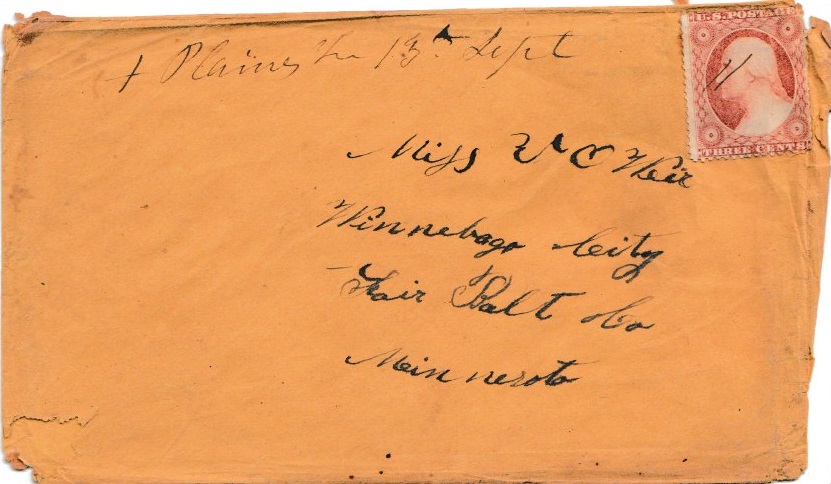 Plaines 13th Sept
U.S. POSTAGE
11
THREE CENTS
Miss V C Weir
Winnebago City
Fair Balt Co
Minnesota